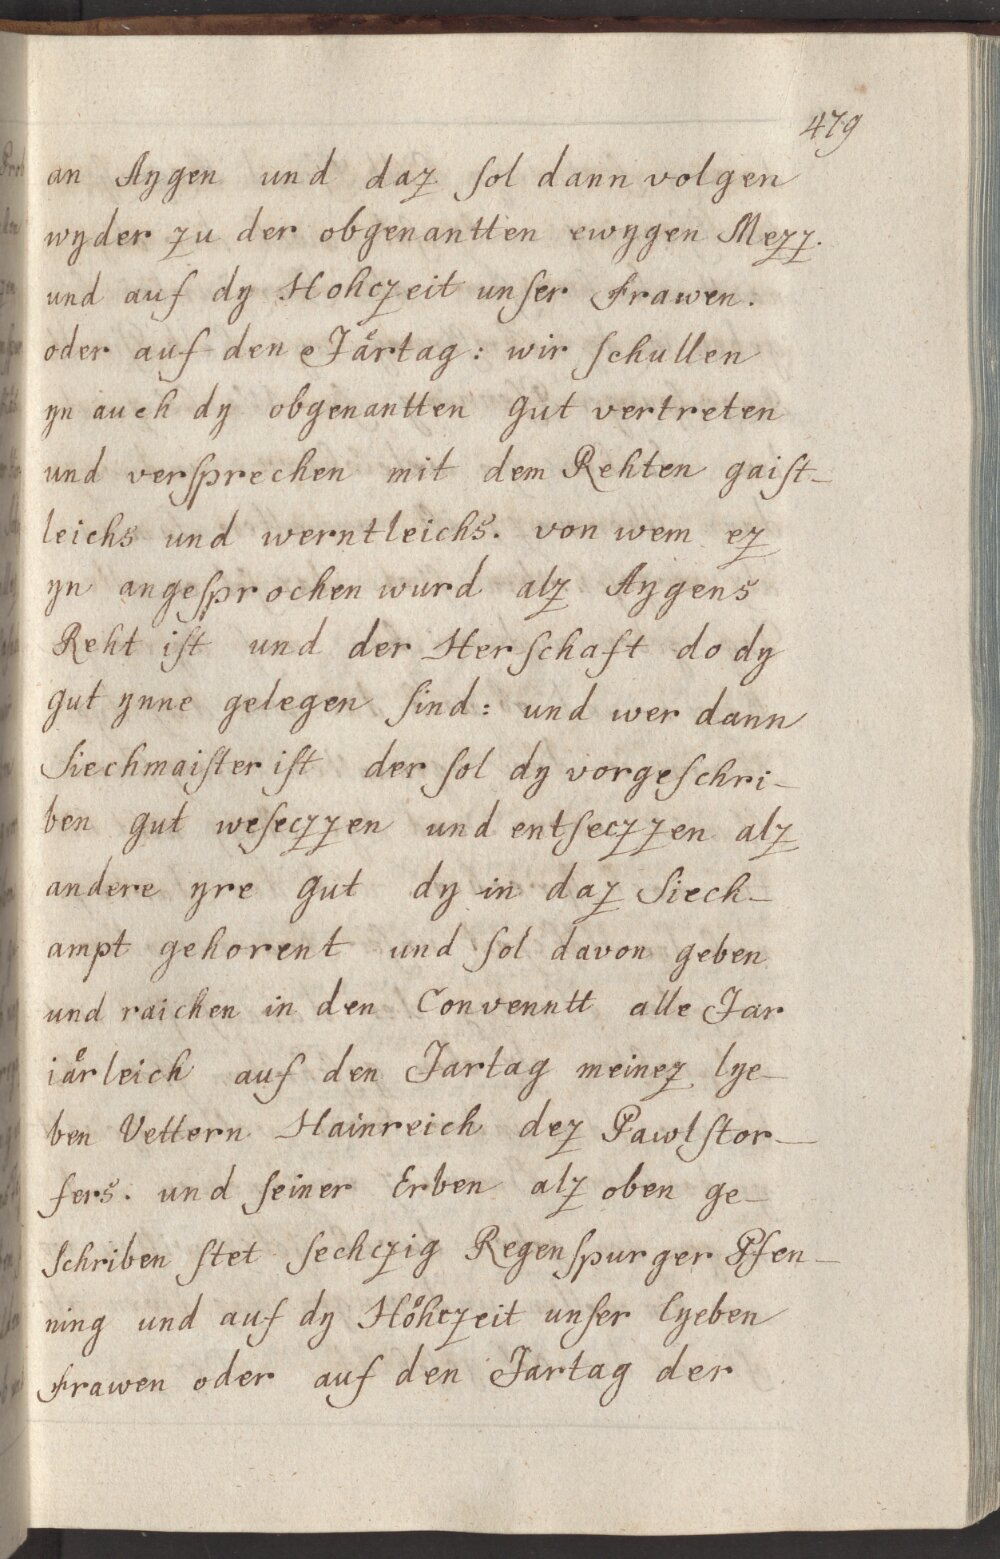 479
an Aygen und daz sol dann volgen
wyder zu der obgenantten ewygen Mezz.
und auf dy Hohczeit unser Frawen.
oder auf den Jaͤrtag: wir schullen
yn auch dy obgenantten Gut vertreten
und versprechen mit dem Rehten gaist-
leichs und werntleichs. von wem ez
yn angesprochen wurd alz Aygens
Reht ist und der Herschaft do dy
gut ynne gelegen sind: und wer dann
Siechmaister ist der sol dy vorgeschri-
ben gut weseczzen und entseczzen alz
andere yre Gut dy in daz Siech-
ampt gehorent und sol davon geben
und raichen in den Convenntt alle Jar
iaͤrleich auf den Jartag meinez lye-
ben Vettern Hainreich dez Pawlstor-
fers. und seiner Erben alz oben ge-
schriben stet sechczig Regenspurger Pfen-
ning und auf dy Hoͤhczeit unser lyeben
Frawen oder auf den Jartag der